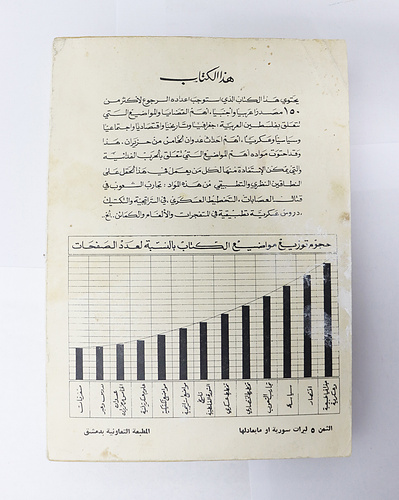 هذا الكتاب
يحتوي هذا الكتاب الذي استوجب اعداده الرجوع لاكثر من
١٥٠ مصدرا عربيا واجنبيا، اهم القضايا والمواضيع التي
تتعلق بفلسطين العربية، جغرافيا وتاريخيا واقتصاديا واجتماعيا
وسياسيا وعسكريا، اهم احداث عدوان الخامس من حزيران، هذا
وقد احتوت مواده اهم المواضيع التي تتعلق بالحرب الفدائية
والتي يمكن الاستفادة منها لكل من يعمل في هذا الحقل على
النطاقين النظري والتطبيقي من هذه المواد: تجارب الشعوب في
قتال العصابات، التخطيط العسكري، في التراتيجية والتكتيك
دروس عسكرية تطبيقية في المتفجرات والألغام والكمائن.. الخ.
حجوم توزيع مواضيع الكتاب بالنسبة لعدد الصفحات
متفرقات
سياسة
اقتصاد
الثمن ٥ ليرات سورية او مايعادلها
المطبعة التعاونية بدمشق